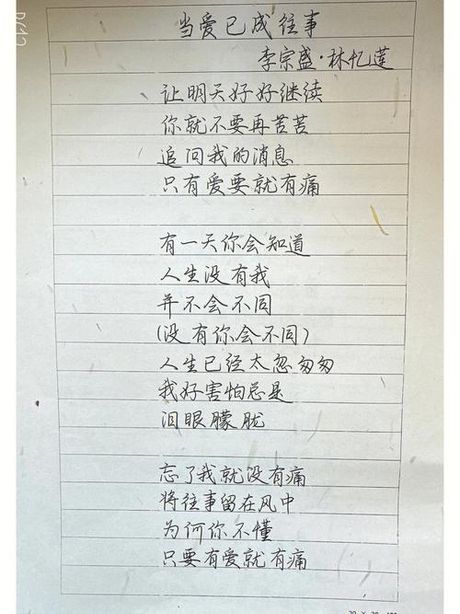 当爱已成往事
李宗盛·林忆莲
让明天好好继续
你就不要再苦苦
追问我的消息
只有爱要就有痛
有一天你会知道
人生没有我
并不会不同
(没有你会不同)
人生已经太忽匆匆
我好害怕总是
泪眼朦胧
忘了我就没有痛
将往事留在风中
为何你不懂
只要有爱就有痛